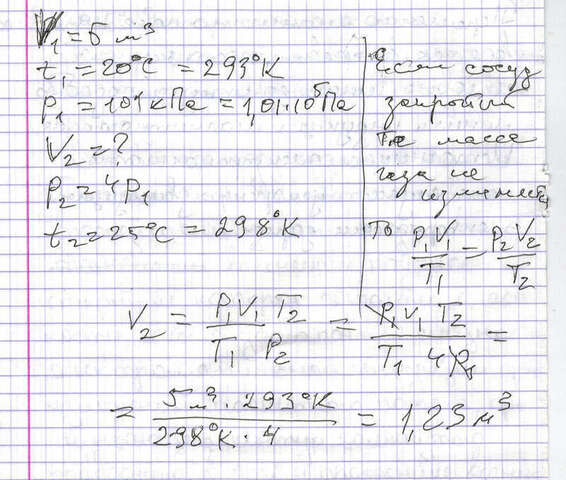 V₁ = 5 м³
t₁ = 20°C = 293°K
P₁ = 101 кПа = 1,01·10⁵ Па
V₂ = ?
P₂ = 4P₁
t₂ = 25°C = 298°K
Если сосуд
закрытый
то масса
газа не
изменяется
то P₁V₁/T₁ = P₂V₂/T₂
V₂ = P₁V₁T₂/T₁P₂ = P₁V₁T₂/T₁4P₁ =
= 5м³·293°K/298°K·4 = 1,23 м³